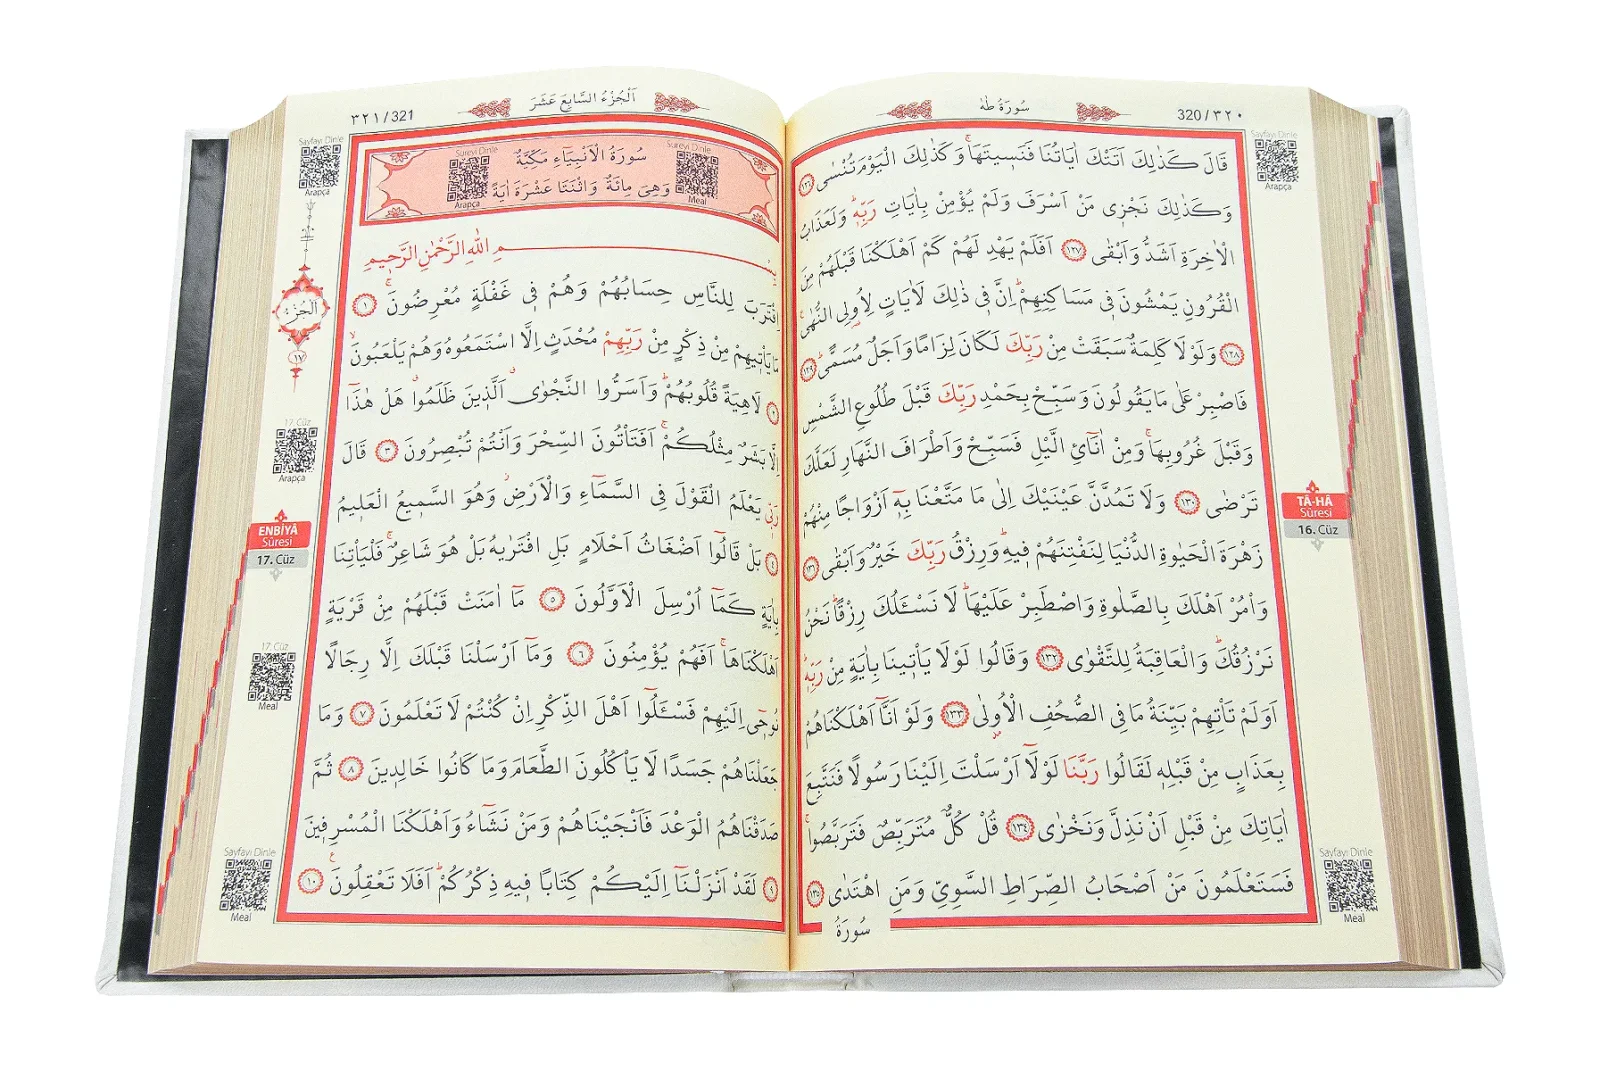 سُورَةُ طٰهٰ
320/٣٢٠
قَالَ كَذٰلِكَ اَتَتْكَ اٰيَاتُنَا فَنَسِيتَهَاۚ وَكَذٰلِكَ الْيَوْمَ تُنْسٰى ﴿١٢٦﴾
وَكَذٰلِكَ نَجْزِى مَنْ اَسْرَفَ وَلَمْ يُؤْمِنْ بِاٰيَاتِ رَبِّهٖۜ وَلَعَذَابُ
الْاٰخِرَةِ اَشَدُّ وَاَبْقٰى ﴿١٢٧﴾ اَفَلَمْ يَهْدِ لَهُمْ كَمْ اَهْلَكْنَا قَبْلَهُمْ مِنَ
الْقُرُونِ يَمْشُونَ فٖى مَسَاكِنِهِمْۜ اِنَّ فٖى ذٰلِكَ لَاٰيَاتٍ لِاُولِى النُّهٰىۚ
﴿١٢٨﴾ وَلَوْلَا كَلِمَةٌ سَبَقَتْ مِنْ رَبِّكَ لَكَانَ لِزَامًا وَاَجَلٌ مُسَمًّىۜ ﴿١٢٩﴾
فَاصْبِرْ عَلٰى مَا يَقُولُونَ وَسَبِّحْ بِحَمْدِ رَبِّكَ قَبْلَ طُلُوعِ الشَّمْسِ
وَقَبْلَ غُرُوبِهَاۚ وَمِنْ اٰنَآئِ الَّيْلِ فَسَبِّحْ وَاَطْرَافَ النَّهَارِ لَعَلَّكَ
تَرْضٰى ﴿١٣٠﴾ وَلَا تَمُدَّنَّ عَيْنَيْكَ اِلٰى مَا مَتَّعْنَا بِهٖٓ اَزْوَاجًا مِنْهُمْ
زَهْرَةَ الْحَيٰوةِ الدُّنْيَا لِنَفْتِنَهُمْ فٖيهِۜ وَرِزْقُ رَبِّكَ خَيْرٌ وَاَبْقٰى ﴿١٣١﴾
وَاْمُرْ اَهْلَكَ بِالصَّلٰوةِ وَاصْطَبِرْ عَلَيْهَاۜ لَا نَسْـَٔلُكَ رِزْقًاۜ نَحْنُ
نَرْزُقُكَۜ وَالْعَاقِبَةُ لِلتَّقْوٰى ﴿١٣٢﴾ وَقَالُوا لَوْلَا يَاْتٖينَا بِاٰيَةٍ مِنْ رَبِّهٖۜ
اَوَلَمْ تَاْتِهِمْ بَيِّنَةُ مَا فِى الصُّحُفِ الْاُولٰى ﴿١٣٣﴾ وَلَوْ اَنَّٓا اَهْلَكْنَاهُمْ
بِعَذَابٍ مِنْ قَبْلِهٖ لَقَالُوا رَبَّنَا لَوْلَٓا اَرْسَلْتَ اِلَيْنَا رَسُولًا فَنَتَّبِعَ
اٰيَاتِكَ مِنْ قَبْلِ اَنْ نَذِلَّ وَنَخْزٰى ﴿١٣٤﴾ قُلْ كُلٌّ مُتَرَبِّصٌ فَتَرَبَّصُواۚ
فَسَتَعْلَمُونَ مَنْ اَصْحَابُ الصِّرَاطِ السَّوِىِّ وَمَنِ اهْتَدٰى ﴿١٣٥﴾
سُورَةُ
Sayfayı Dinle
Arapça
TÂ-HÂ
Sûresi
16. Cüz
Sayfayı Dinle
Meal
اَلْجُزْءُ السَّابِعَ عَشَرَ
٣٢١/321
سُورَةُ الْاَنْبِيَٓاءِ مَكِّيَّةٌ
وَهِىَ مِائَةٌ وَاثْنَتَا عَشْرَةَ اٰيَةً
Sureyi Dinle
Meal
Sureyi Dinle
Arapça
بِسْمِ اللّٰهِ الرَّحْمٰنِ الرَّحٖيمِ
اِقْتَرَبَ لِلنَّاسِ حِسَابُهُمْ وَهُمْ فٖى غَفْلَةٍ مُعْرِضُونَۚ ﴿١﴾
مَا يَاْتٖيهِمْ مِنْ ذِكْرٍ مِنْ رَبِّهِمْ مُحْدَثٍ اِلَّا اسْتَمَعُوهُ وَهُمْ يَلْعَبُونَۙ
﴿٢﴾ لَاهِيَةً قُلُوبُهُمْۜ وَاَسَرُّوا النَّجْوٰىۗ اَلَّذٖينَ ظَلَمُواۗ هَلْ هٰذَٓا
اِلَّا بَشَرٌ مِثْلُكُمْۚ اَفَتَاْتُونَ السِّحْرَ وَاَنْتُمْ تُبْصِرُونَ ﴿٣﴾ قَالَ
رَبّٖى يَعْلَمُ الْقَوْلَ فِى السَّمَٓاءِ وَالْاَرْضِۘ وَهُوَ السَّمٖيعُ الْعَلٖيمُ
﴿٤﴾ بَلْ قَالُٓوا اَضْغَاثُ اَحْلَامٍ بَلِ افْتَرٰيهُ بَلْ هُوَ شَاعِرٌۚ فَلْيَاْتِنَا
بِاٰيَةٍ كَمَٓا اُرْسِلَ الْاَوَّلُونَ ﴿٥﴾ مَٓا اٰمَنَتْ قَبْلَهُمْ مِنْ قَرْيَةٍ
اَهْلَكْنَاهَاۚ اَفَهُمْ يُؤْمِنُونَ ﴿٦﴾ وَمَٓا اَرْسَلْنَا قَبْلَكَ اِلَّا رِجَالًا
نُوحٖٓى اِلَيْهِمْ فَسْـَٔلُٓوا اَهْلَ الذِّكْرِ اِنْ كُنْتُمْ لَا تَعْلَمُونَ ﴿٧﴾ وَمَا
جَعَلْنَاهُمْ جَسَدًا لَا يَاْكُلُونَ الطَّعَامَ وَمَا كَانُوا خَالِدٖينَ ﴿٨﴾ ثُمَّ
صَدَقْنَاهُمُ الْوَعْدَ فَاَنْجَيْنَاهُمْ وَمَنْ نَشَٓاءُ وَاَهْلَكْنَا الْمُسْرِفٖينَ
﴿٩﴾ لَقَدْ اَنْزَلْنَٓا اِلَيْكُمْ كِتَابًا فٖيهِ ذِكْرُكُمْۜ اَفَلَا تَعْقِلُونَ۟ ﴿١٠﴾
Sayfayı Dinle
Arapça
اَلْجُزْءُ
١٧
17. Cüz
Arapça
ENBİYÂ
Sûresi
17. Cüz
17. Cüz
Meal
Sayfayı Dinle
Meal